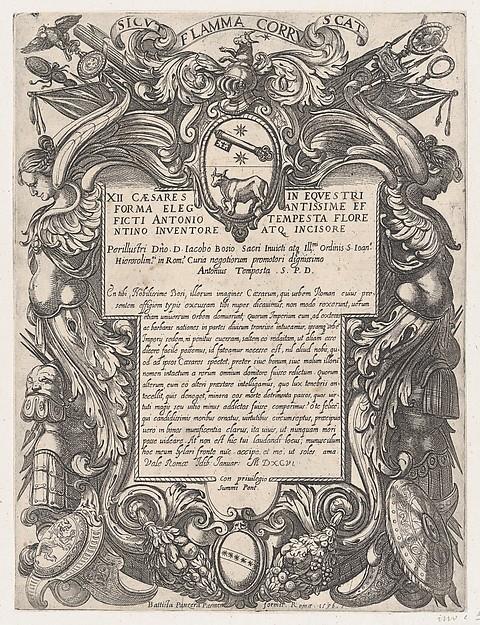 SICVT FLAMMA CORRVSCAT
XII CÆSARES IN EQVESTRI
FORMA ELEG ANTISSIME EF
FICTI ANTONIO TEMPESTA FLORE
NTINO INVENTORE ATQ. INCISORE
Perillustri Dño. D. Iacobo Bosio Sacri Invicti atq. Ill.mi Ordinis S. Ioan.
Hierosolim.ni in Rom.a Curia negotiorum promotori dignissimo
Antonius Tempesta . S. P. D.
En tibi Nobilissime Bosi, illorum imagines Cæsarum, qui urbem Romam cuius præ-
sentem effigiem typis excusam tibi nuper dicavimus, non modo rexerunt, verum
etiam universum orbem domuerunt; quorum Imperium cum ad externas
ac barbaras nationes in partes divisum transisse intueamur,
Imperij sedem, ni penitus everram, saltem eo redactam, ut aliam cere
dicere facile possemus, id fateamur necesse est, nil aliud nobis, qu
od ad ipsos Cæsares spectet, præter sive bonum, sive malum illorum
nomen intactum a rerum omnium domitore fuisse relictum. Quorum
alterum cum eo alteri præstare intelligamus, quo lux tenebris an
tecellit, quis deneget, minora eos morte detrimenta passos, quos vir
tuti magis seu vitio minus addictos fuisse comperimus? O te felicem
qui candidissimis moribus ornatus, virtutibus circumseptus, præcipue
vero in bonos munificentia clarus, ita vivis, ut nunquam mori
posse videaris. At non est hic tui laudandi locus; munusculum
hoc meum hylari fronte nunc accipe, et me, ut soles ama
Vale Romæ Idib. Ianuar. M D XCVI.
con privilegio
Summi Pont.
Battista Panzera Parmen. formis Romæ 1596.
inv